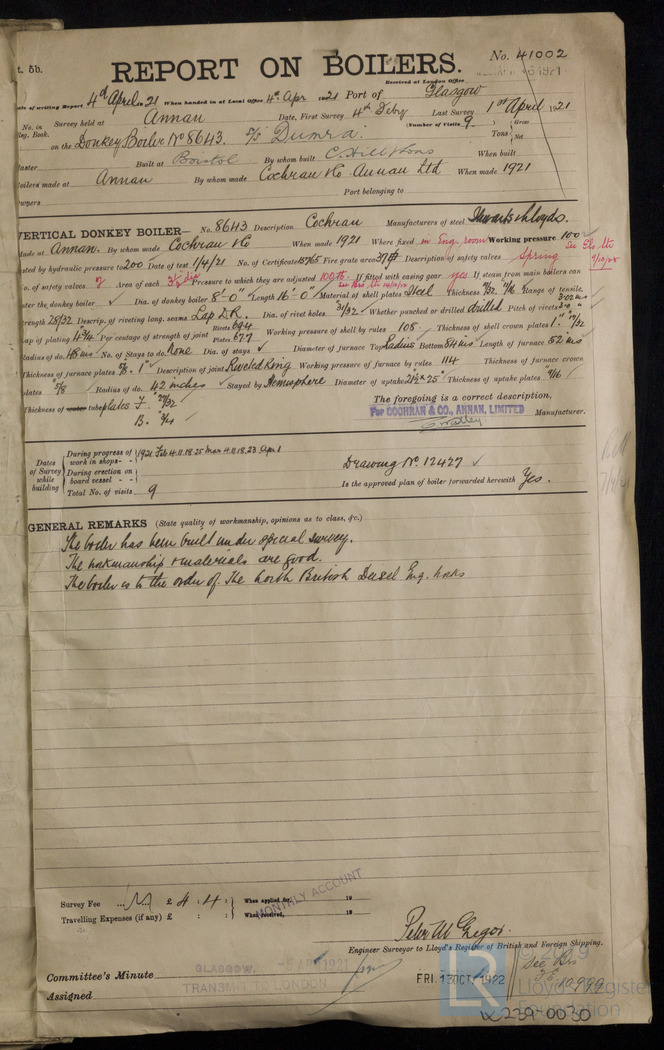 t. 5b.
REPORT ON BOILERS.
No. 41002
Received at London Office
Date of writing Report 4th April 1921 When handed in at Local Office 4th Apr 1921 Port of Glasgow
No. in Survey held at Annan Date, First Survey 4th Feby Last Survey 1st April 1921
Reg. Book. (Number of Visits 9 )
on the Donkey Boiler No 8643. S/S Dumra. Tons { Gross Net
Master Built at Bristol By whom built C. Hill & Sons When built
Boilers made at Annan By whom made Cochran & Co Annan Ltd When made 1921
Owners Port belonging to
VERTICAL DONKEY BOILER— No. 8643 Description Cochran Manufacturers of steel Stewarts & Lloyds.
Made at Annan. By whom made Cochran & Co When made 1921 Where fixed in Eng. room Working pressure 100
tested by hydraulic pressure to 200 Date of test 1/4/21 No. of Certificate 15765 Fire grate area 37 Description of safety valves Spring
No. of safety valves 2 Area of each 3½" dia Pressure to which they are adjusted 100 lb. If fitted with easing gear yes If steam from main boilers can
enter the donkey boiler ✓ Dia. of donkey boiler 8'-0" Length 16'-0" Material of shell plates Steel Thickness Range of tensile
strength 28/32 Descrip. of riveting long. seams Lap D.R. Dia. of rivet holes 31/32 Whether punched or drilled drilled Pitch of rivets
Lap of plating 4¾ Per centage of strength of joint Rivets 69.4 Plates 67.7 Working pressure of shell by rules 108 Thickness of shell crown plates
Radius of do. 48 ins No. of Stays to do. None Dia. of stays ✓ Diameter of furnace Top Radius Bottom 84 ins Length of furnace 52 ins
Thickness of furnace plates Description of joint Riveted Ring Working pressure of furnace by rules 114 Thickness of furnace crown
plates 5/8 Radius of do. 42 inches Stayed by Hemisphere Diameter of uptake 21½ x 25" Thickness of uptake plates 9/16
Thickness of water tubes plates F. 27/32
B. 3/4
The foregoing is a correct description,
For COCHRAN & CO., ANNAN, LIMITED Manufacturer.
Dates of Survey while building
During progress of work in shops - - 1921 Feb 4.11.18.25 Mar 4.11.18.23 Apr 1
During erection on board vessel - - -
Total No. of visits 9
Drawing No. 12427 ✓
Is the approved plan of boiler forwarded herewith Yes.
GENERAL REMARKS (State quality of workmanship, opinions as to class, &c.)
The boiler has been built under special survey.
The workmanship & materials are good.
The boiler is to the order of The North British Diesel Eng. Works
Survey Fee ... £ 4 : 4 : When applied for, 19
Travelling Expenses (if any) £ : : When received, 19
MONTHLY ACCOUNT
Peter McGregor.
Engineer Surveyor to Lloyd's Register of British and Foreign Shipping.
Committee's Minute
GLASGOW, 5 APR 1921
TRANSMIT TO LONDON
FRI. 13 OCT. 1922
Assigned
© 2019
Lloyd's Register
Foundation
LR
239 0030